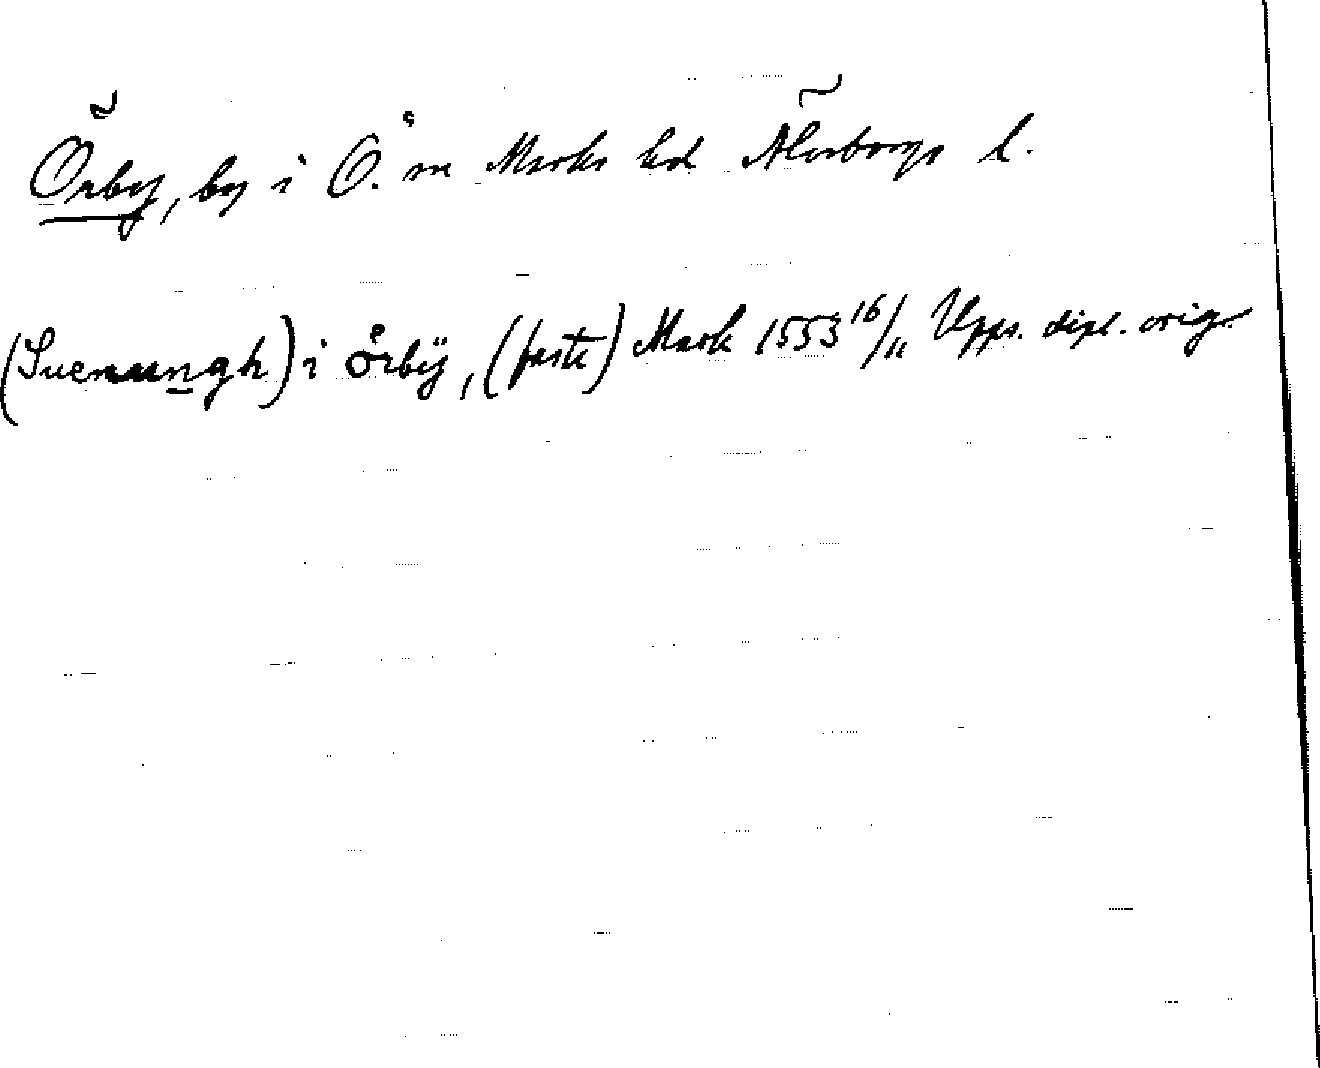 Örby, by i Ö. sn Marks hd Älvsborgs l.
(Suenungh) i örbÿ, (faste) Mark 1553 16/11 Upps. dipl. orig.